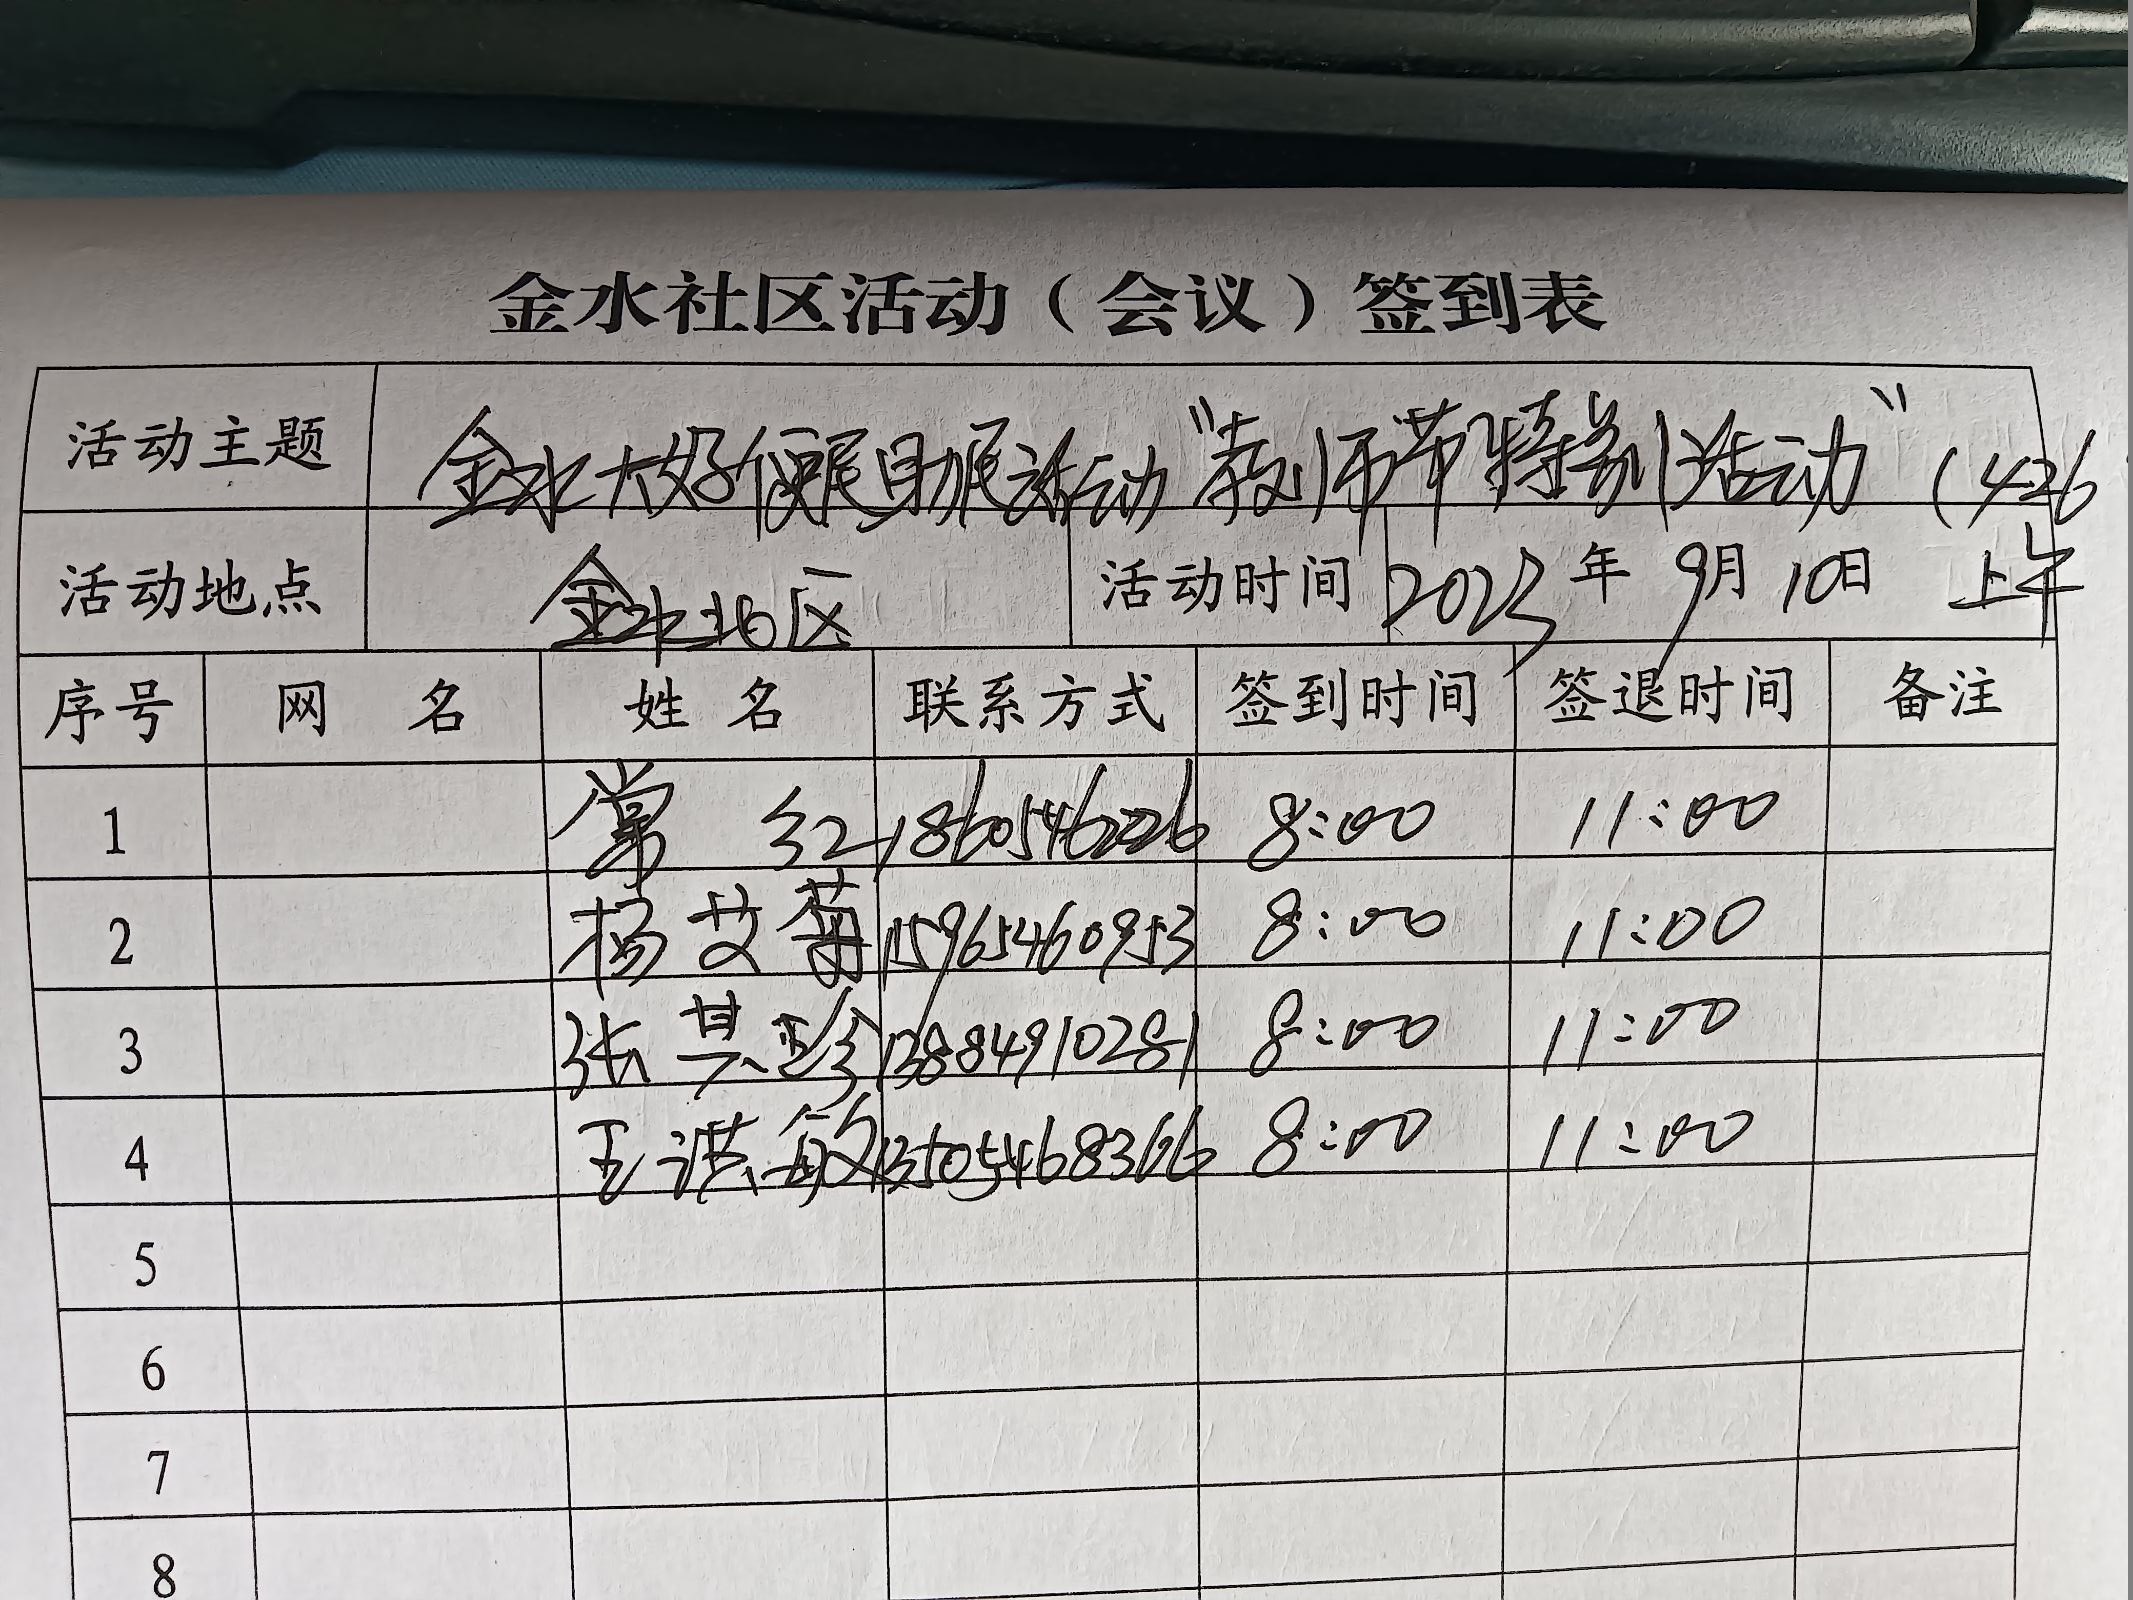 金水社区活动（会议）签到表
活动主题 金水大好便民自助服活动"教师节特别活动"（426
活动地点 金水北区 活动时间 2023年9月10日 上午
序号 网 名 姓 名 联系方式 签到时间 签退时间 备注
1 常 红 8:00 11:00
2 杨艾菊 15965460953 8:00 11:00
3 张其珍 13884910281 8:00 11:00
4 王洪敏 13505468366 8:00 11:00
5
6
7
8